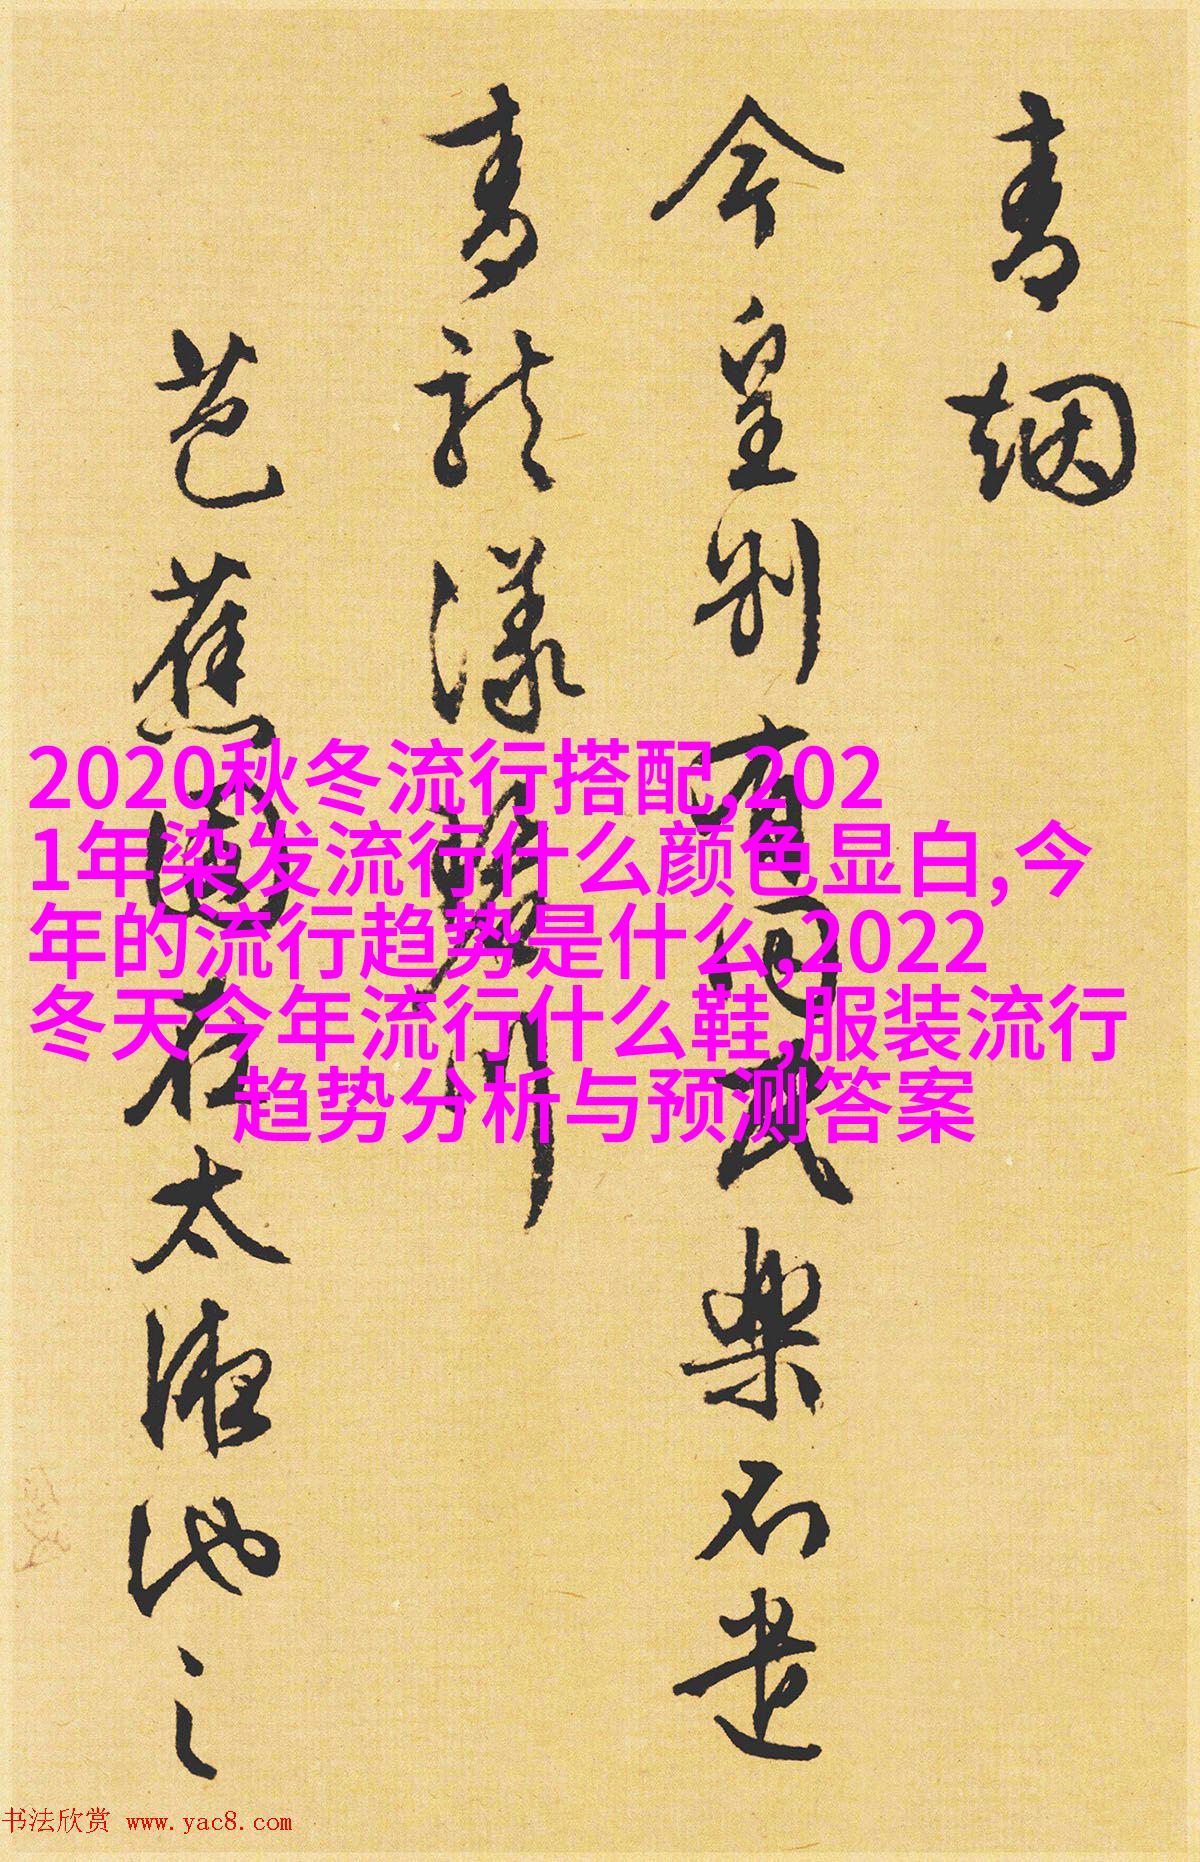 青烟
今皇别有同民樂不遣
青龍漾
芭蕉園在太液池之
2020秋冬流行搭配,202
1年染发流行什么颜色显白,今
年的流行趋势是什么,2022
冬天今年流行什么鞋,服装流行
趋势分析与预测答案
书法欣赏 www.yac8.com